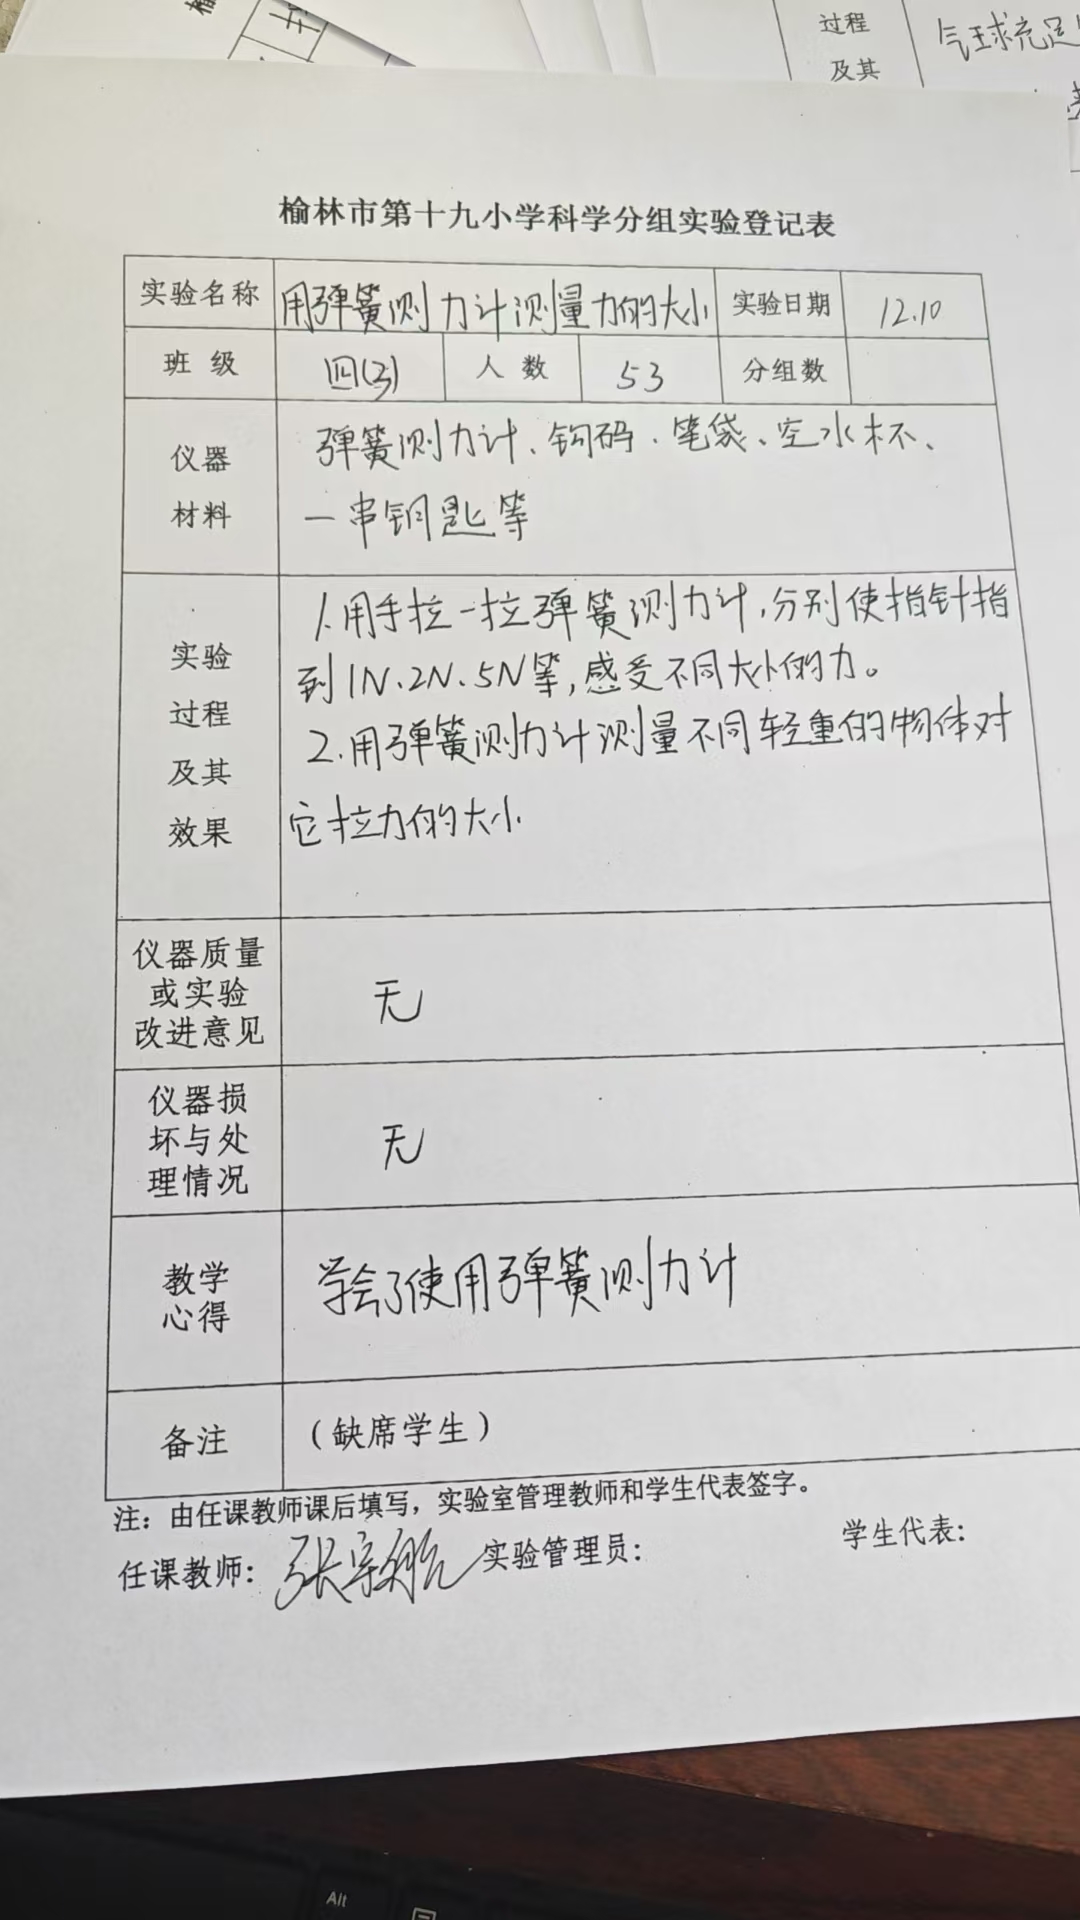 过程
及其
气球充足
榆林市第十九小学科学分组实验登记表
实验名称 用弹簧测力计测量力的大小 实验日期 12.10
班 级 四(3) 人 数 53 分组数
仪器
材料
弹簧测力计、钩码、笔袋、空水杯、
一串钥匙等
实验
过程
及其
效果
1.用手拉一拉弹簧测力计,分别使指针指
到1N、2N、5N等,感受不同大小的力。
2.用弹簧测力计测量不同轻重的物体对
它拉力的大小
仪器质量
或实验
改进意见
无
仪器损
坏与处
理情况
无
教学
心得
学会了使用弹簧测力计
备注 (缺席学生)
注：由任课教师课后填写，实验室管理教师和学生代表签字。
任课教师： 张宗航 实验管理员： 学生代表：
Alt